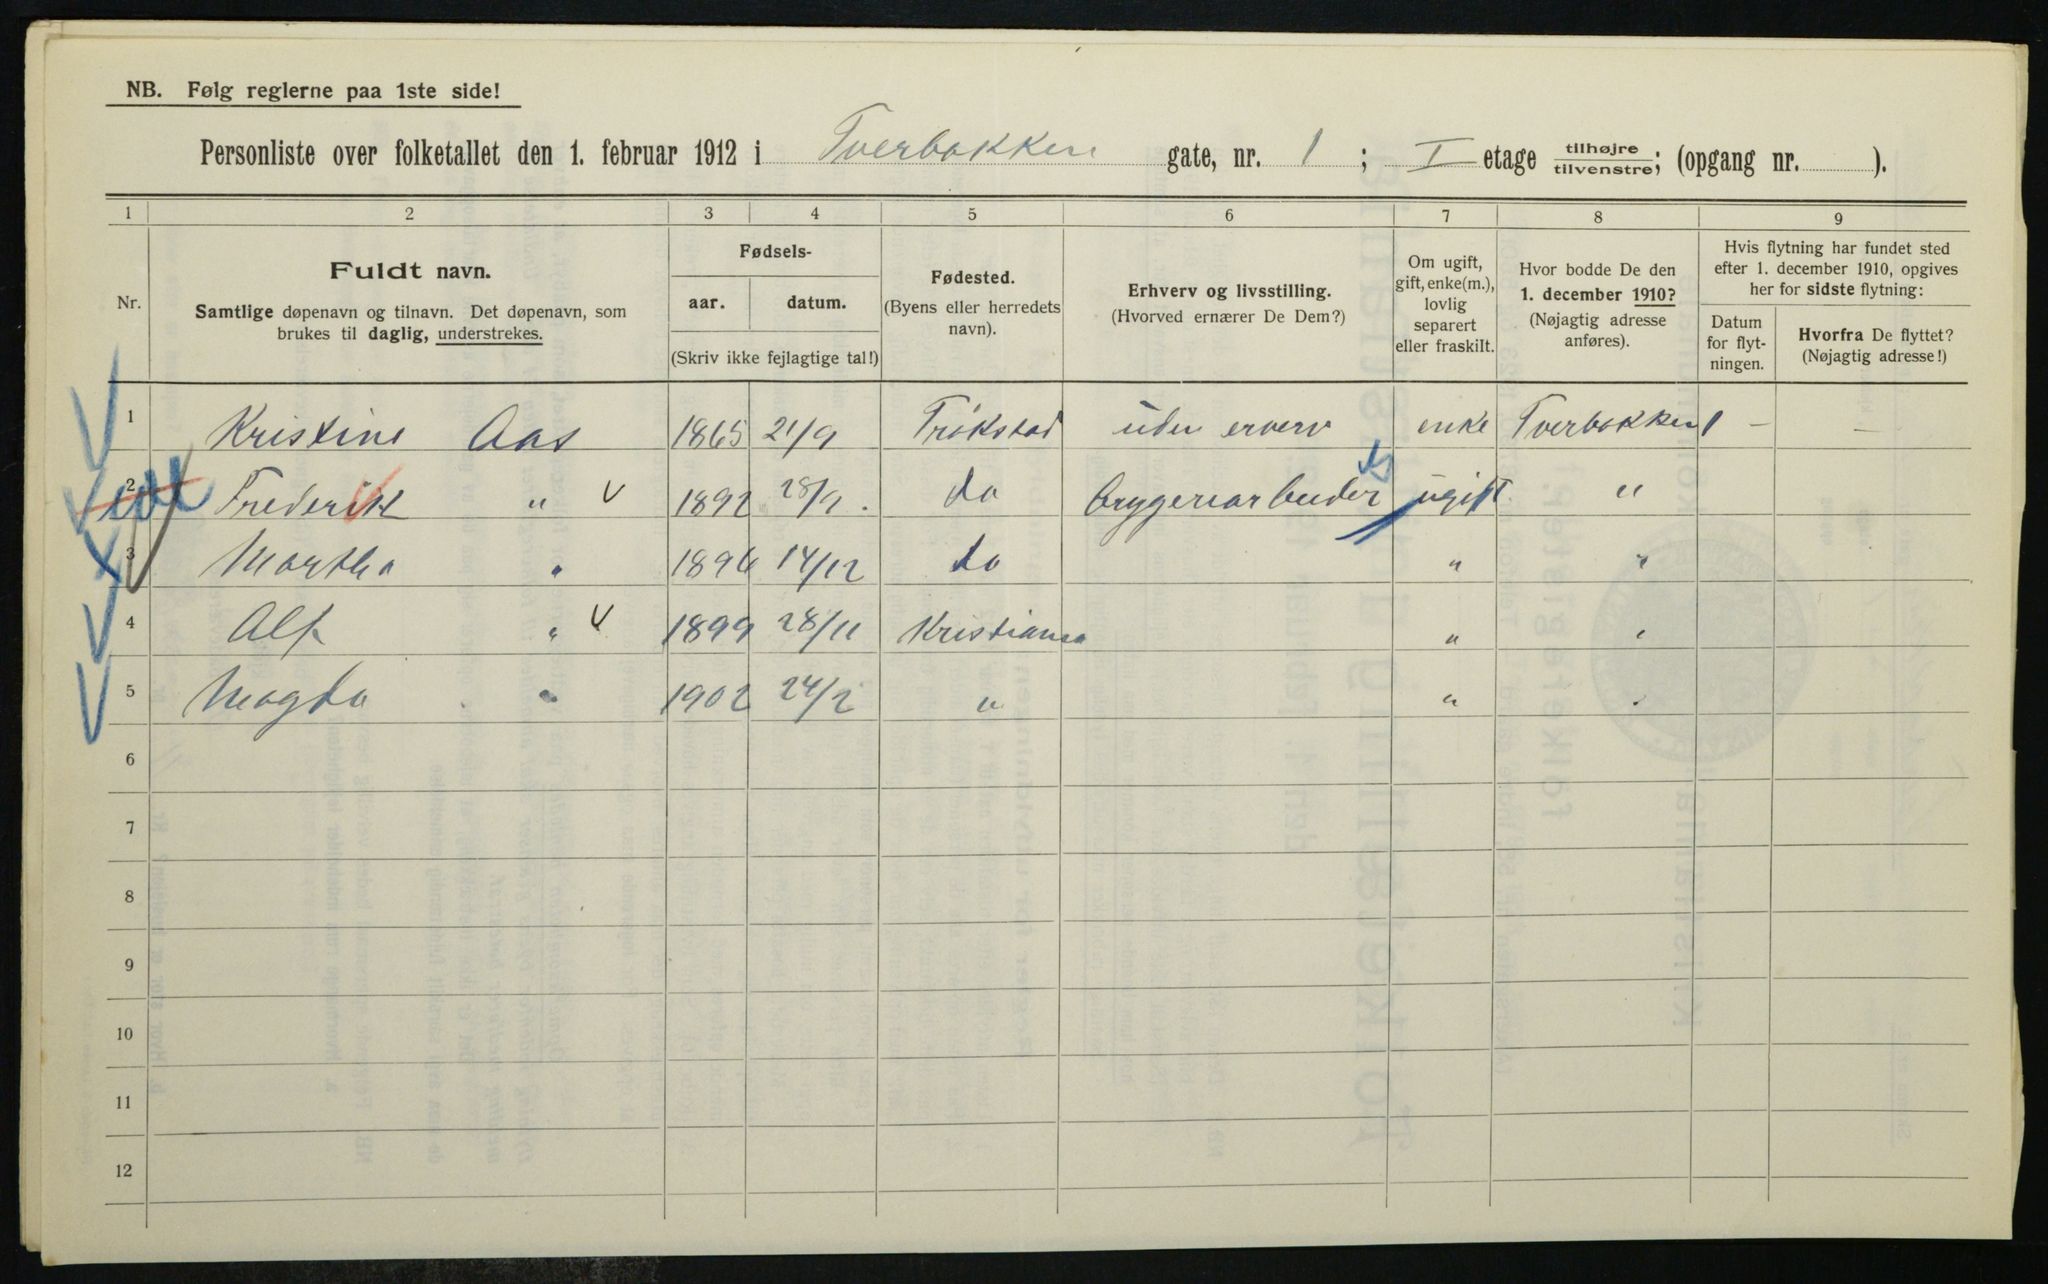 NB. Følg reglerne paa 1ste side!
Personliste over folketallet den 1. februar 1912 i Tverbakken gate, nr. 1 ; I etage tilhøjre/tilvenstre; (opgang nr. ).
1 2 3 4 5 6 7 8 9
Nr.
Fuldt navn.
Samtlige døpenavn og tilnavn. Det døpenavn, som
brukes til daglig, understrekes.
Fødsels-
aar. datum.
(Skriv ikke fejlagtige tal!)
Fødested.
(Byens eller herredets
navn).
Erhverv og livsstilling.
(Hvorved ernærer De Dem?)
Om ugift,
gift, enke(m.),
lovlig
separert
eller fraskilt.
Hvor bodde De den
1. december 1910?
(Nøjagtig adresse
anføres).
Hvis flytning har fundet sted
efter 1. december 1910, opgives
her for sidste flytning:
Datum
for flyt-
ningen.
Hvorfra De flyttet?
(Nøjagtig adresse!)
1 Kristine Aas 1865 21/9 Trøkstad uden erverv enke Tverbakken 1 — —
2 Frederik " 1892 28/9. do bryggeriarbeider ugift "
3 Martha " 1896 14/12 do " "
4 Alf " 1899 28/11 Kristiania " "
5 Magda " 1902 24/2 " " "
6
7
8
9
10
11
12